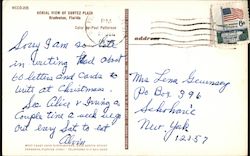 AERIAL VIEW OF CORTEZ PLAZA
Bradenton, Florida
Color by Paul Patterson
Sorry I am so late
in writing. Had about
60 letters and cards to
write at Christmas.
See Alice & Irving a
couple time a week
out every Sat to eat
Mrs Lena
PO Box 396
Schoharie
New York
12157